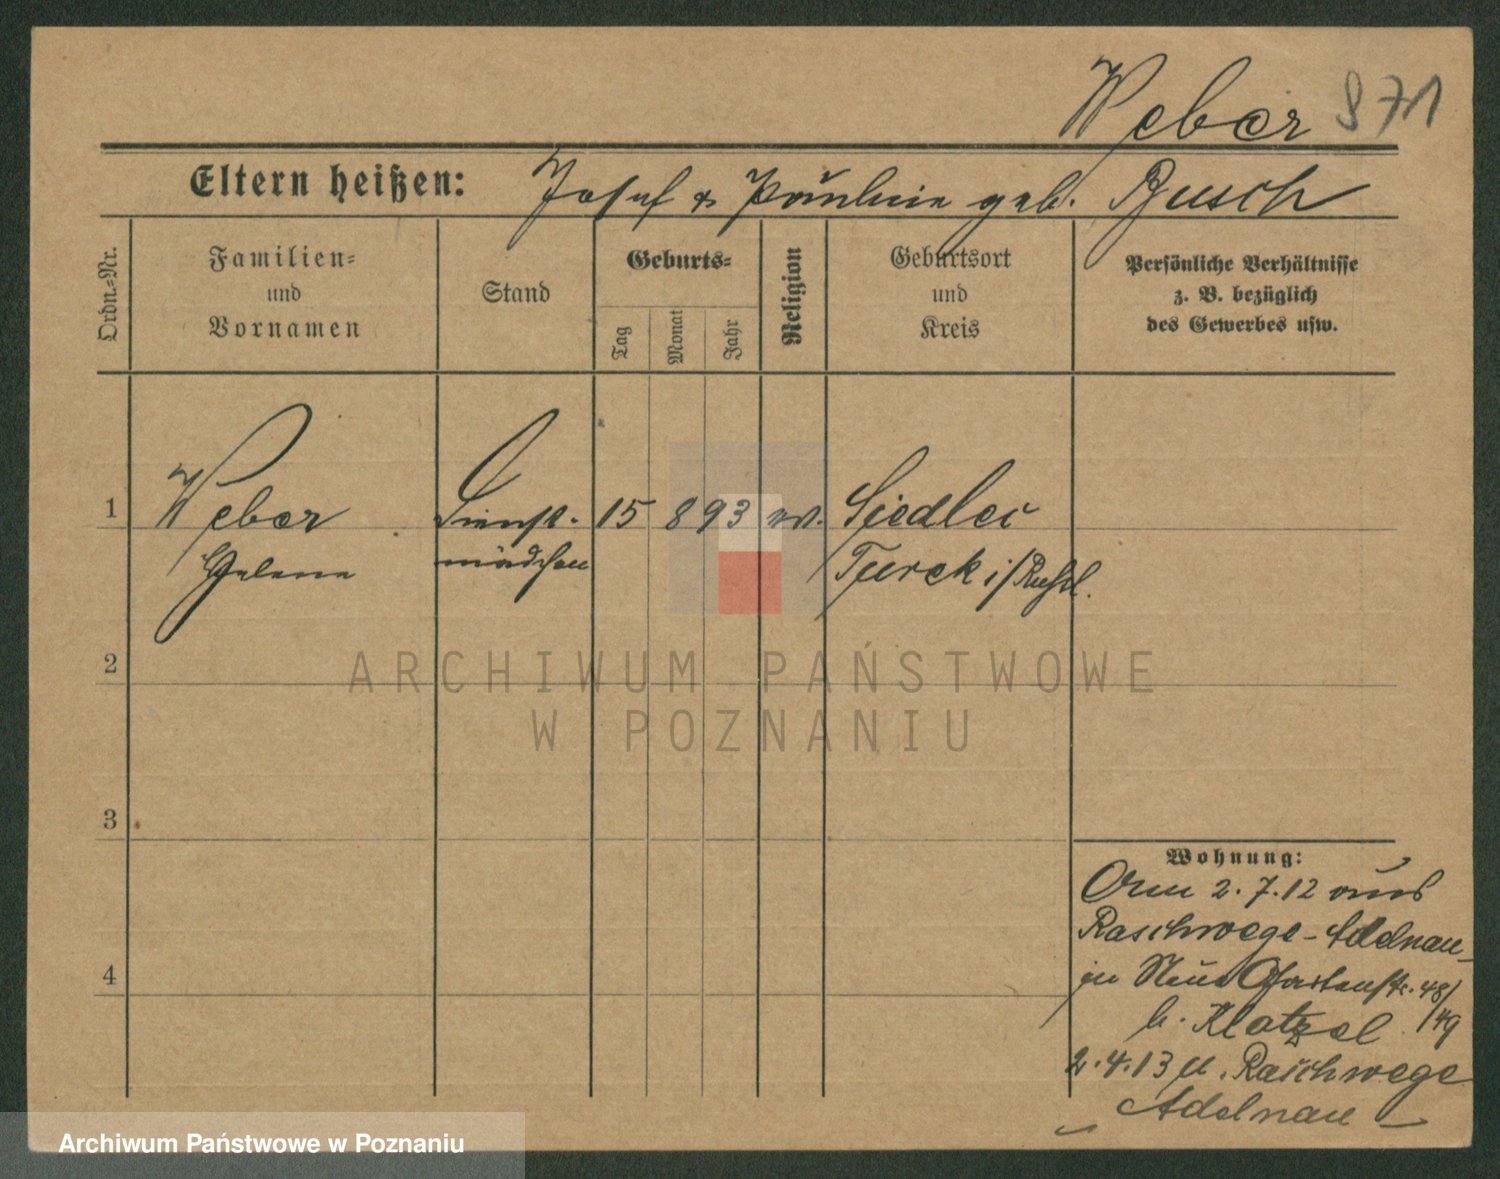 Weber 871
Eltern heißen: Josef & Pauline geb. Busch
Ordn.-Nr.
Familien-
und
Vornamen
Stand
Geburts-
Tag
Monat
Jahr
Religion
Geburtsort
und
Kreis
Persönliche Verhältnisse
z. B. bezüglich
des Gewerbes usw.
1 Weber Dienst- 15 8 93 ev. Siedlec
Helene mädchen Turek i/Rußl.
2
3
4
Wohnung:
2.7.12 aus
Raschwege-Adelnau
in Neue Gartenstr. 48/
49
b. Klatzel
2.4.13 n. Raschwege
Adelnau
ARCHIWUM PAŃSTWOWE
W POZNANIU
Archiwum Państwowe w Poznaniu